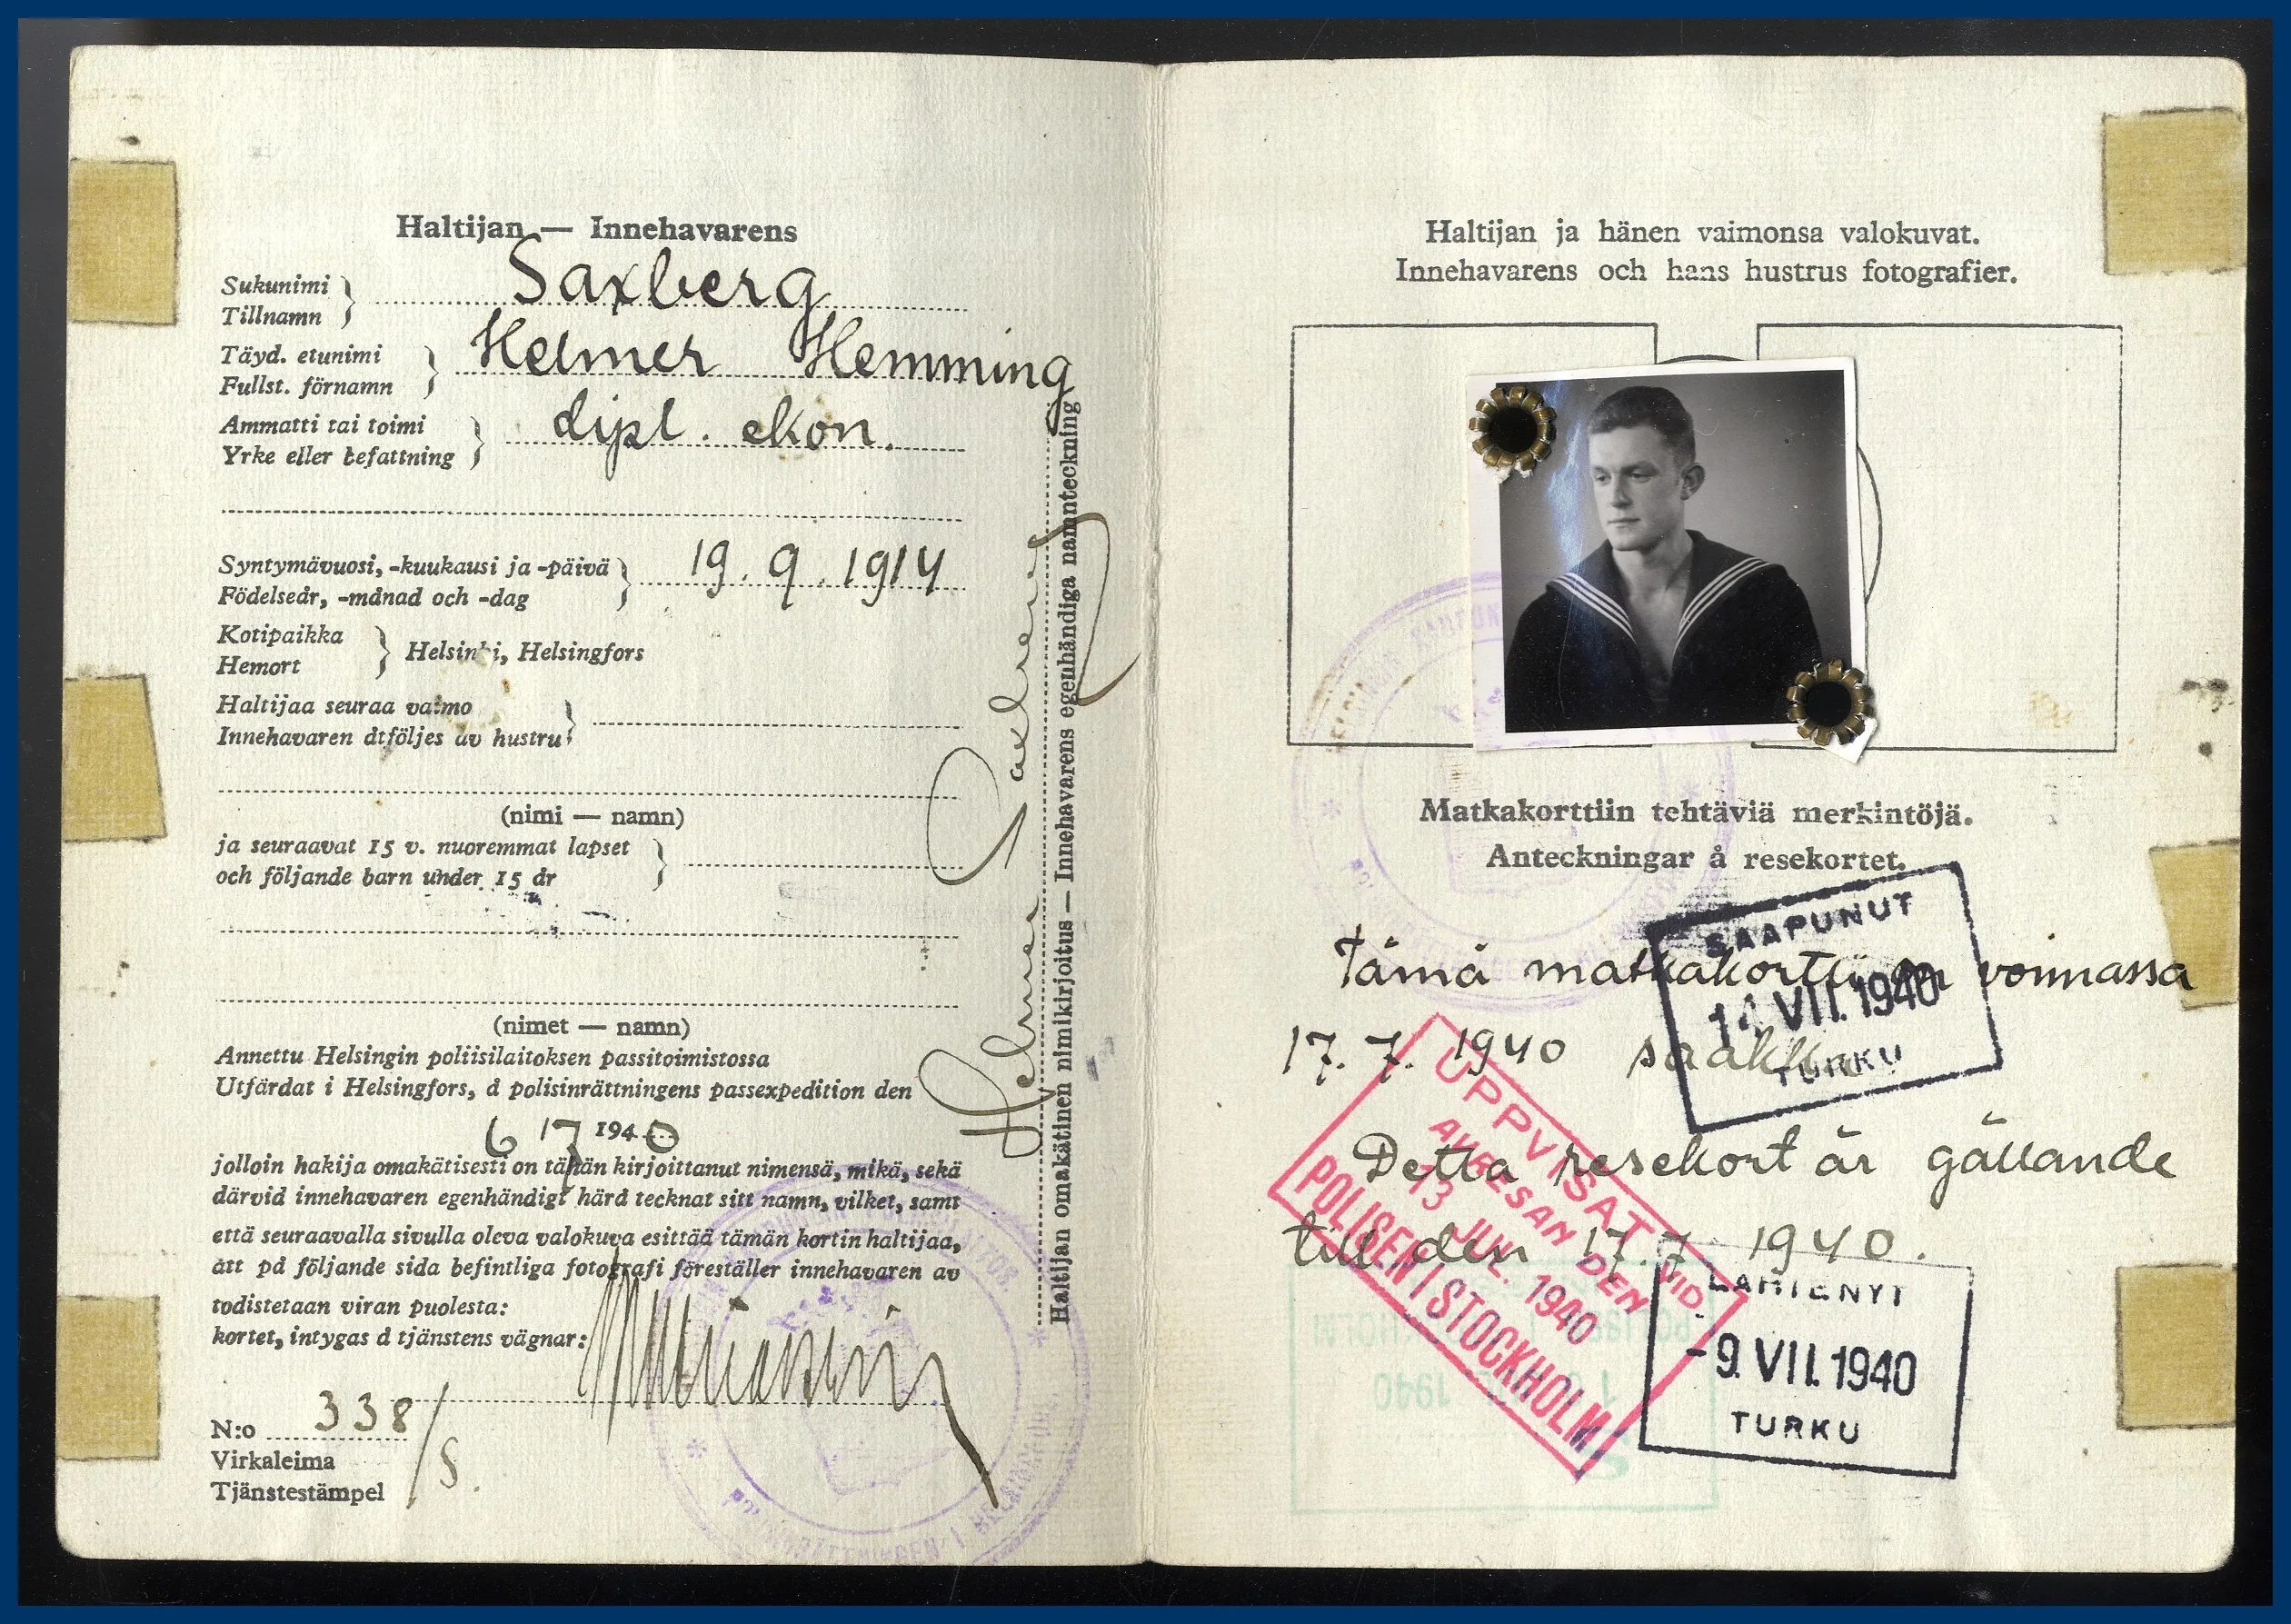 Haltijan — Innehavarens
Sukunimi
Tillnamn
Saxberg
Täyd. etunimi
Fullst. förnamn
Helmer Hemming
Ammatti tai toimi
Yrke eller befattning
dipl. ekon.
Syntymävuosi, -kuukausi ja -päivä
Födelseår, -månad och -dag
19.9.1914
Kotipaikka
Hemort
Helsinki, Helsingfors
Haltijaa seuraa vaimo
Innehavaren åtföljes av hustru
(nimi — namn)
ja seuraavat 15 v. nuoremmat lapset
och följande barn under 15 år
(nimet — namn)
Annettu Helsingin poliisilaitoksen passitoimistossa
Utfärdat i Helsingfors, å polisinrättningens passexpedition den
6 17 1940
jolloin hakija omakätisesti on tähän kirjoittanut nimensä, mikä, sekä
därvid innehavaren egenhändigt härå tecknat sitt namn, vilket, samt
että seuraavalla sivulla oleva valokuva esittää tämän kortin haltijaa,
att på följande sida befintliga fotografi föreställer innehavaren av
todistetaan viran puolesta:
kortet, intygas å tjänstens vägnar:
N:o 338/S.
Virkaleima
Tjänstestämpel
Helmer Saxberg
Haltijan omakätinen nimikirjoitus — Innehavarens egenhändiga namnteckning
Haltijan ja hänen vaimonsa valokuvat.
Innehavarens och hans hustrus fotografier.
Matkakorttiin tehtäviä merkintöjä.
Anteckningar å resekortet.
Tämä matkakortti on voimassa
17.7.1940 saakka
Detta resekort är gällande
till den 17.7 1940.
SAAPUNUT
14 VII. 1940
TURKU
UPPVISAT VID
AVRESAN DEN
13 JUL. 1940
POLISEN I STOCKHOLM
LÄHTENYT
-9. VII. 1940
TURKU